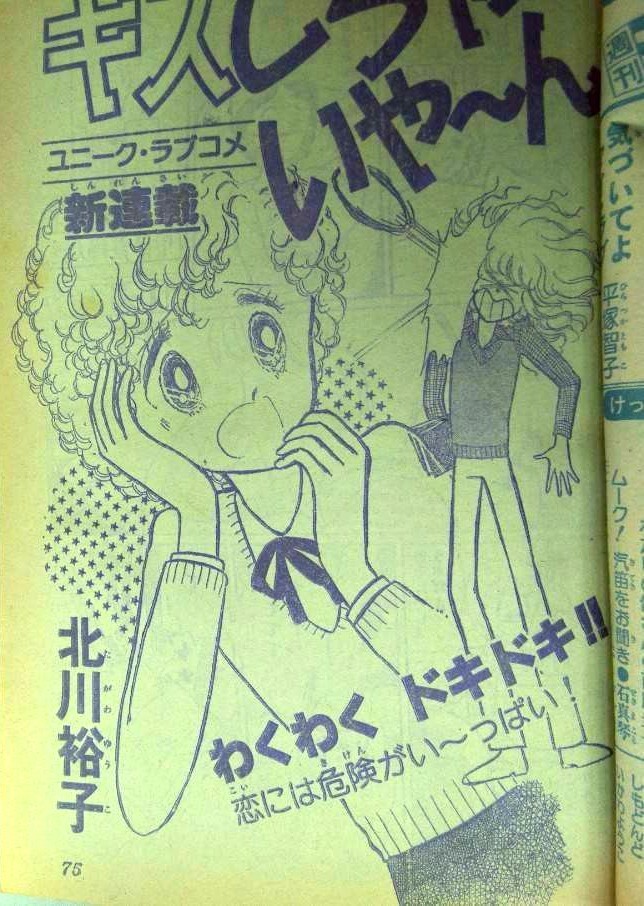 キスしちゃ
いや～ん
ユニーク・ラブコメ
しんれんさい
新連載
わくわく ドキドキ!!
恋には危険がい～っぱい!
こい きけん
北川裕子
たがわゆうこ
75
週刊
気づいてよ
平塚智子
ひらつかともこ
けっ
ムーク! 汽笛をお聞き●石真琴